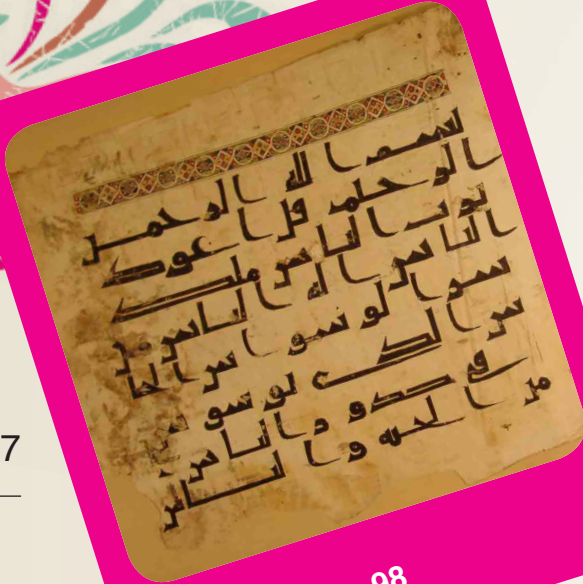 بسم الله الرحمن
الرحيم قل اعوذ
برب الناس ملك
الناس اله الناس من
شر الوسواس الخنا
س الذي يوسوس
في صدور الناس
من الجنة والناس
7
98